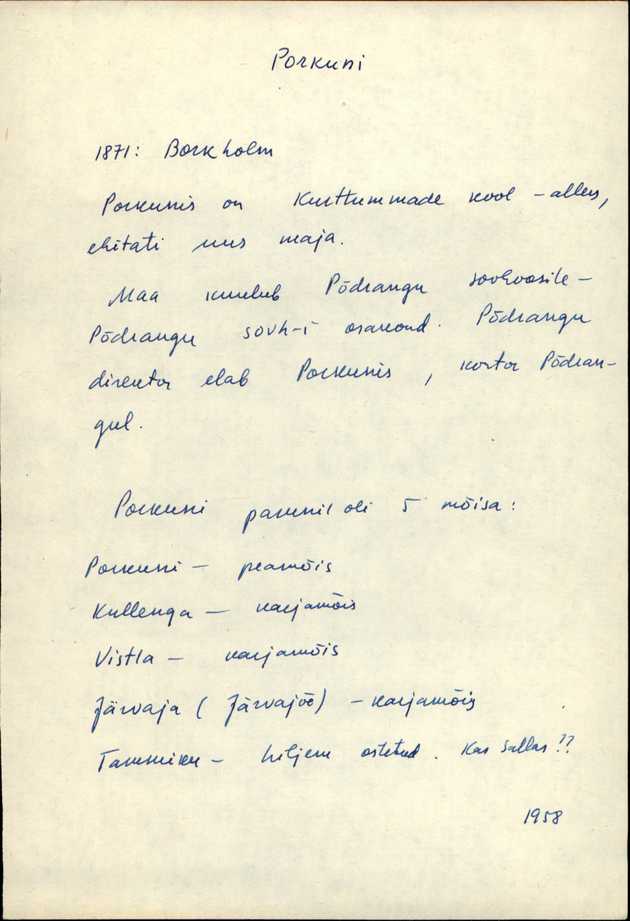 Porkuni
1871: Borkholm
Porkunis on Kurttummade kool - alles,
ehitati uus maja.
Maa kuulub Põdrangu sovhoosile -
Põdrangu sovh-i osakond. Põdrangu
direktor elab Porkunis, kontor Põdran-
gul.
Porkuni parunil oli 5 mõisa:
Porkuni - peamõis
Kullenga - karjamõis
Vistla - karjamõis
Järvaja (Järvajõõ) - karjamõis
Tammiku - hiljem ostetud. Kas Sallas??
1958